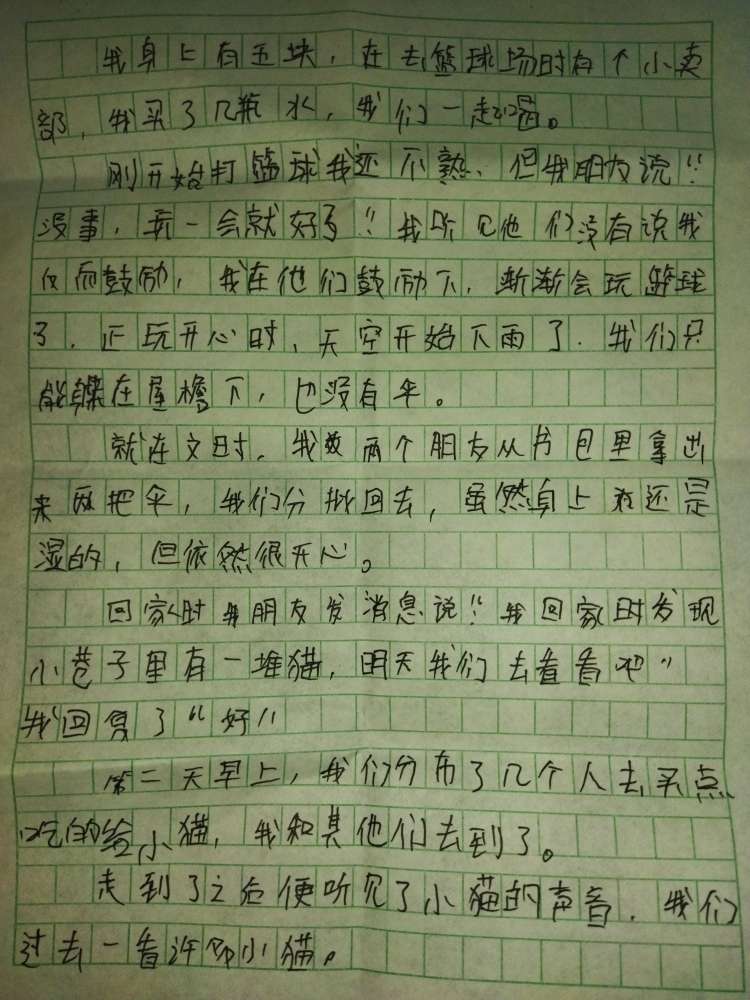 我身上有五块，在去篮球场时有个小卖
部，我买了几瓶水，我们一起喝。
刚开始打篮球我还不熟，但我朋友说"
没事，玩一会就好了"我听见他们没有说我
反而鼓励，我在他们鼓励下，渐渐会玩篮球
了，正玩开心时，天空开始下雨了，我们只
能躲在屋檐下，也没有伞。
就在这时，我两个朋友从书包里拿出
来两把伞，我们分批回去，虽然身上还是
湿的，但依然很开心。
回家时我朋友发消息说"我回家时发现
小巷子里有一堆猫，明天我们去看看吧"
我回复了"好"
第二天早上，我们分布了几个人去买点
吃的给小猫，我和其他们去到了。
走到了之后便听见了小猫的声音，我们
过去一看许多小猫。